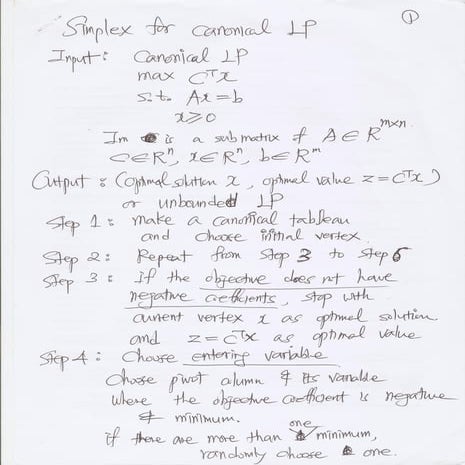 Simplex for Canonical LP
①
Input: Canonical LP
max Cᵀx
s.t. Ax = b
x ≥ 0
Im is a submatrix of A ∈ R^{m×n}
C ∈ Rⁿ, x ∈ Rⁿ, b ∈ Rᵐ
Output: (optimal solution x, optimal value z = Cᵀx)
or unbounded LP
Step 1: make a canonical tableau
and choose initial vertex.
Step 2: Repeat from step 3 to step 6
Step 3: If the objective does not have
negative coefficients, stop with
current vertex x as optimal solution
and z = Cᵀx as optimal value
Step 4: Choose entering variable
Choose pivot column & its variable
where the objective coefficient is negative
& minimum.
if there are more than one minimum,
randomly choose one.